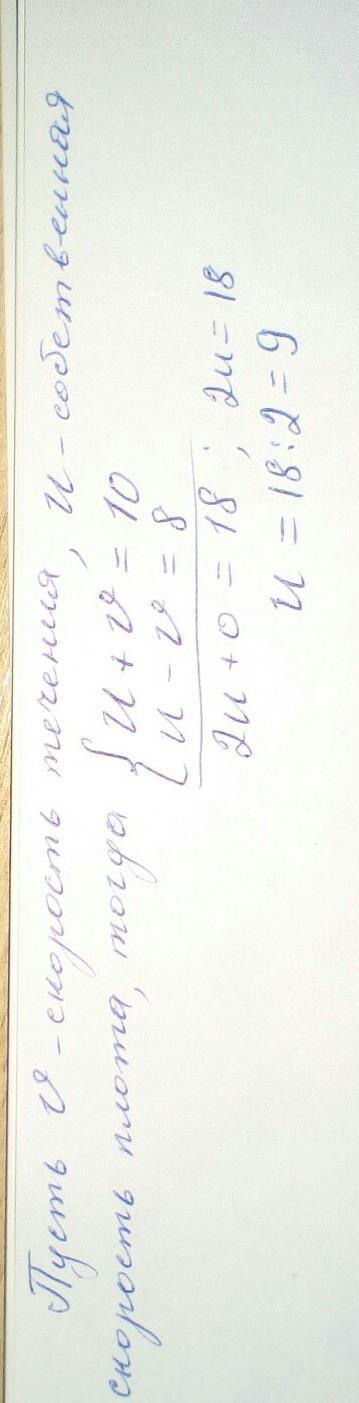 Пусть v - скорость течения, u - собственная
скорость плота, тогда { u + v = 10
u - v = 8
2u + 0 = 18 ; 2u = 18
u = 18 : 2 = 9